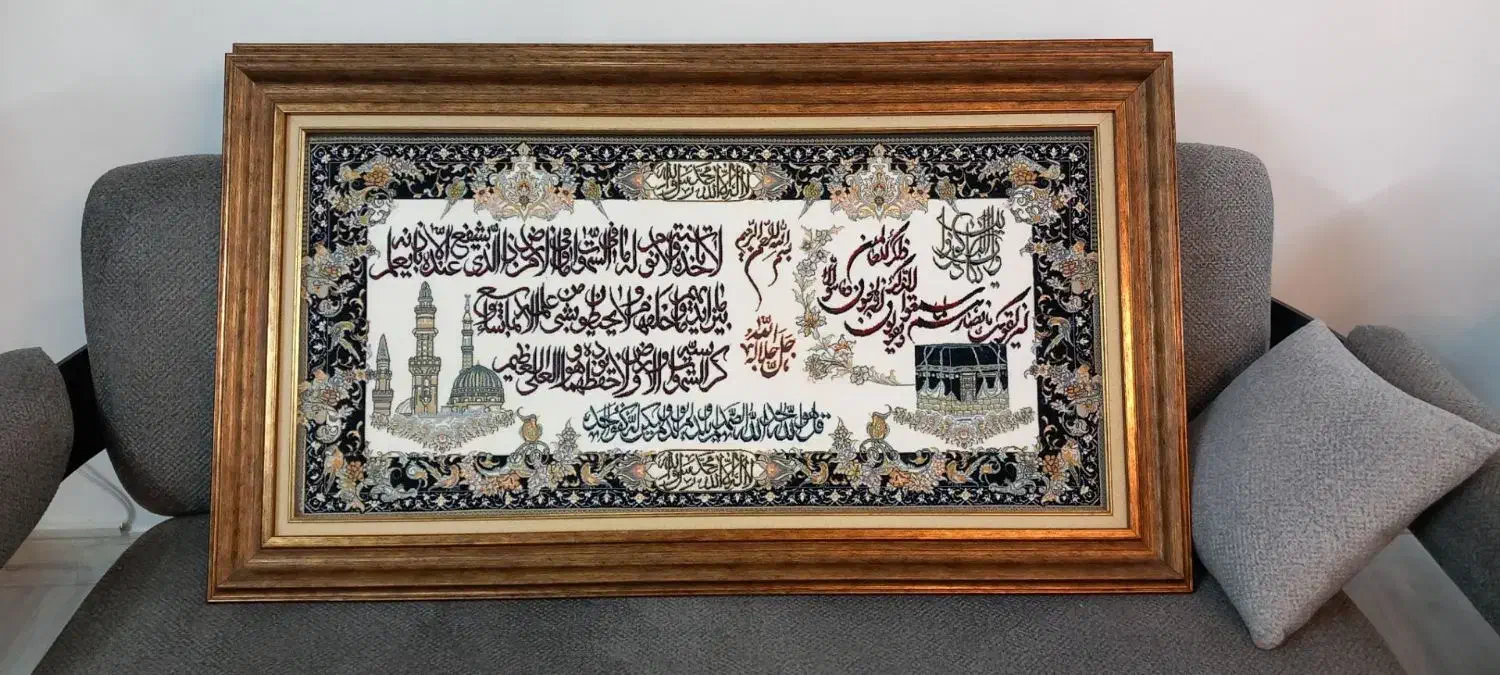 لا اله الا الله محمد رسول الله
ليزلقونك بابصارهم لما سمعوا الذكر ويقولون انه لمجنون وما هو الا ذكر للعالمين
بسم الله الرحمن الرحيم
جل جلاله
لا تأخذه سنة ولا نوم له ما في السموات وما في الارض من ذا الذي يشفع عنده الا باذنه يعلم
ما بين ايديهم وما خلفهم ولا يحيطون بشيء من علمه الا بما شاء وسع
كرسيه السموات والارض ولا يؤده حفظهما وهو العلي العظيم
قل هو الله احد الله الصمد لم يلد ولم يولد ولم يكن له كفوا احد
لا اله الا الله محمد رسول الله